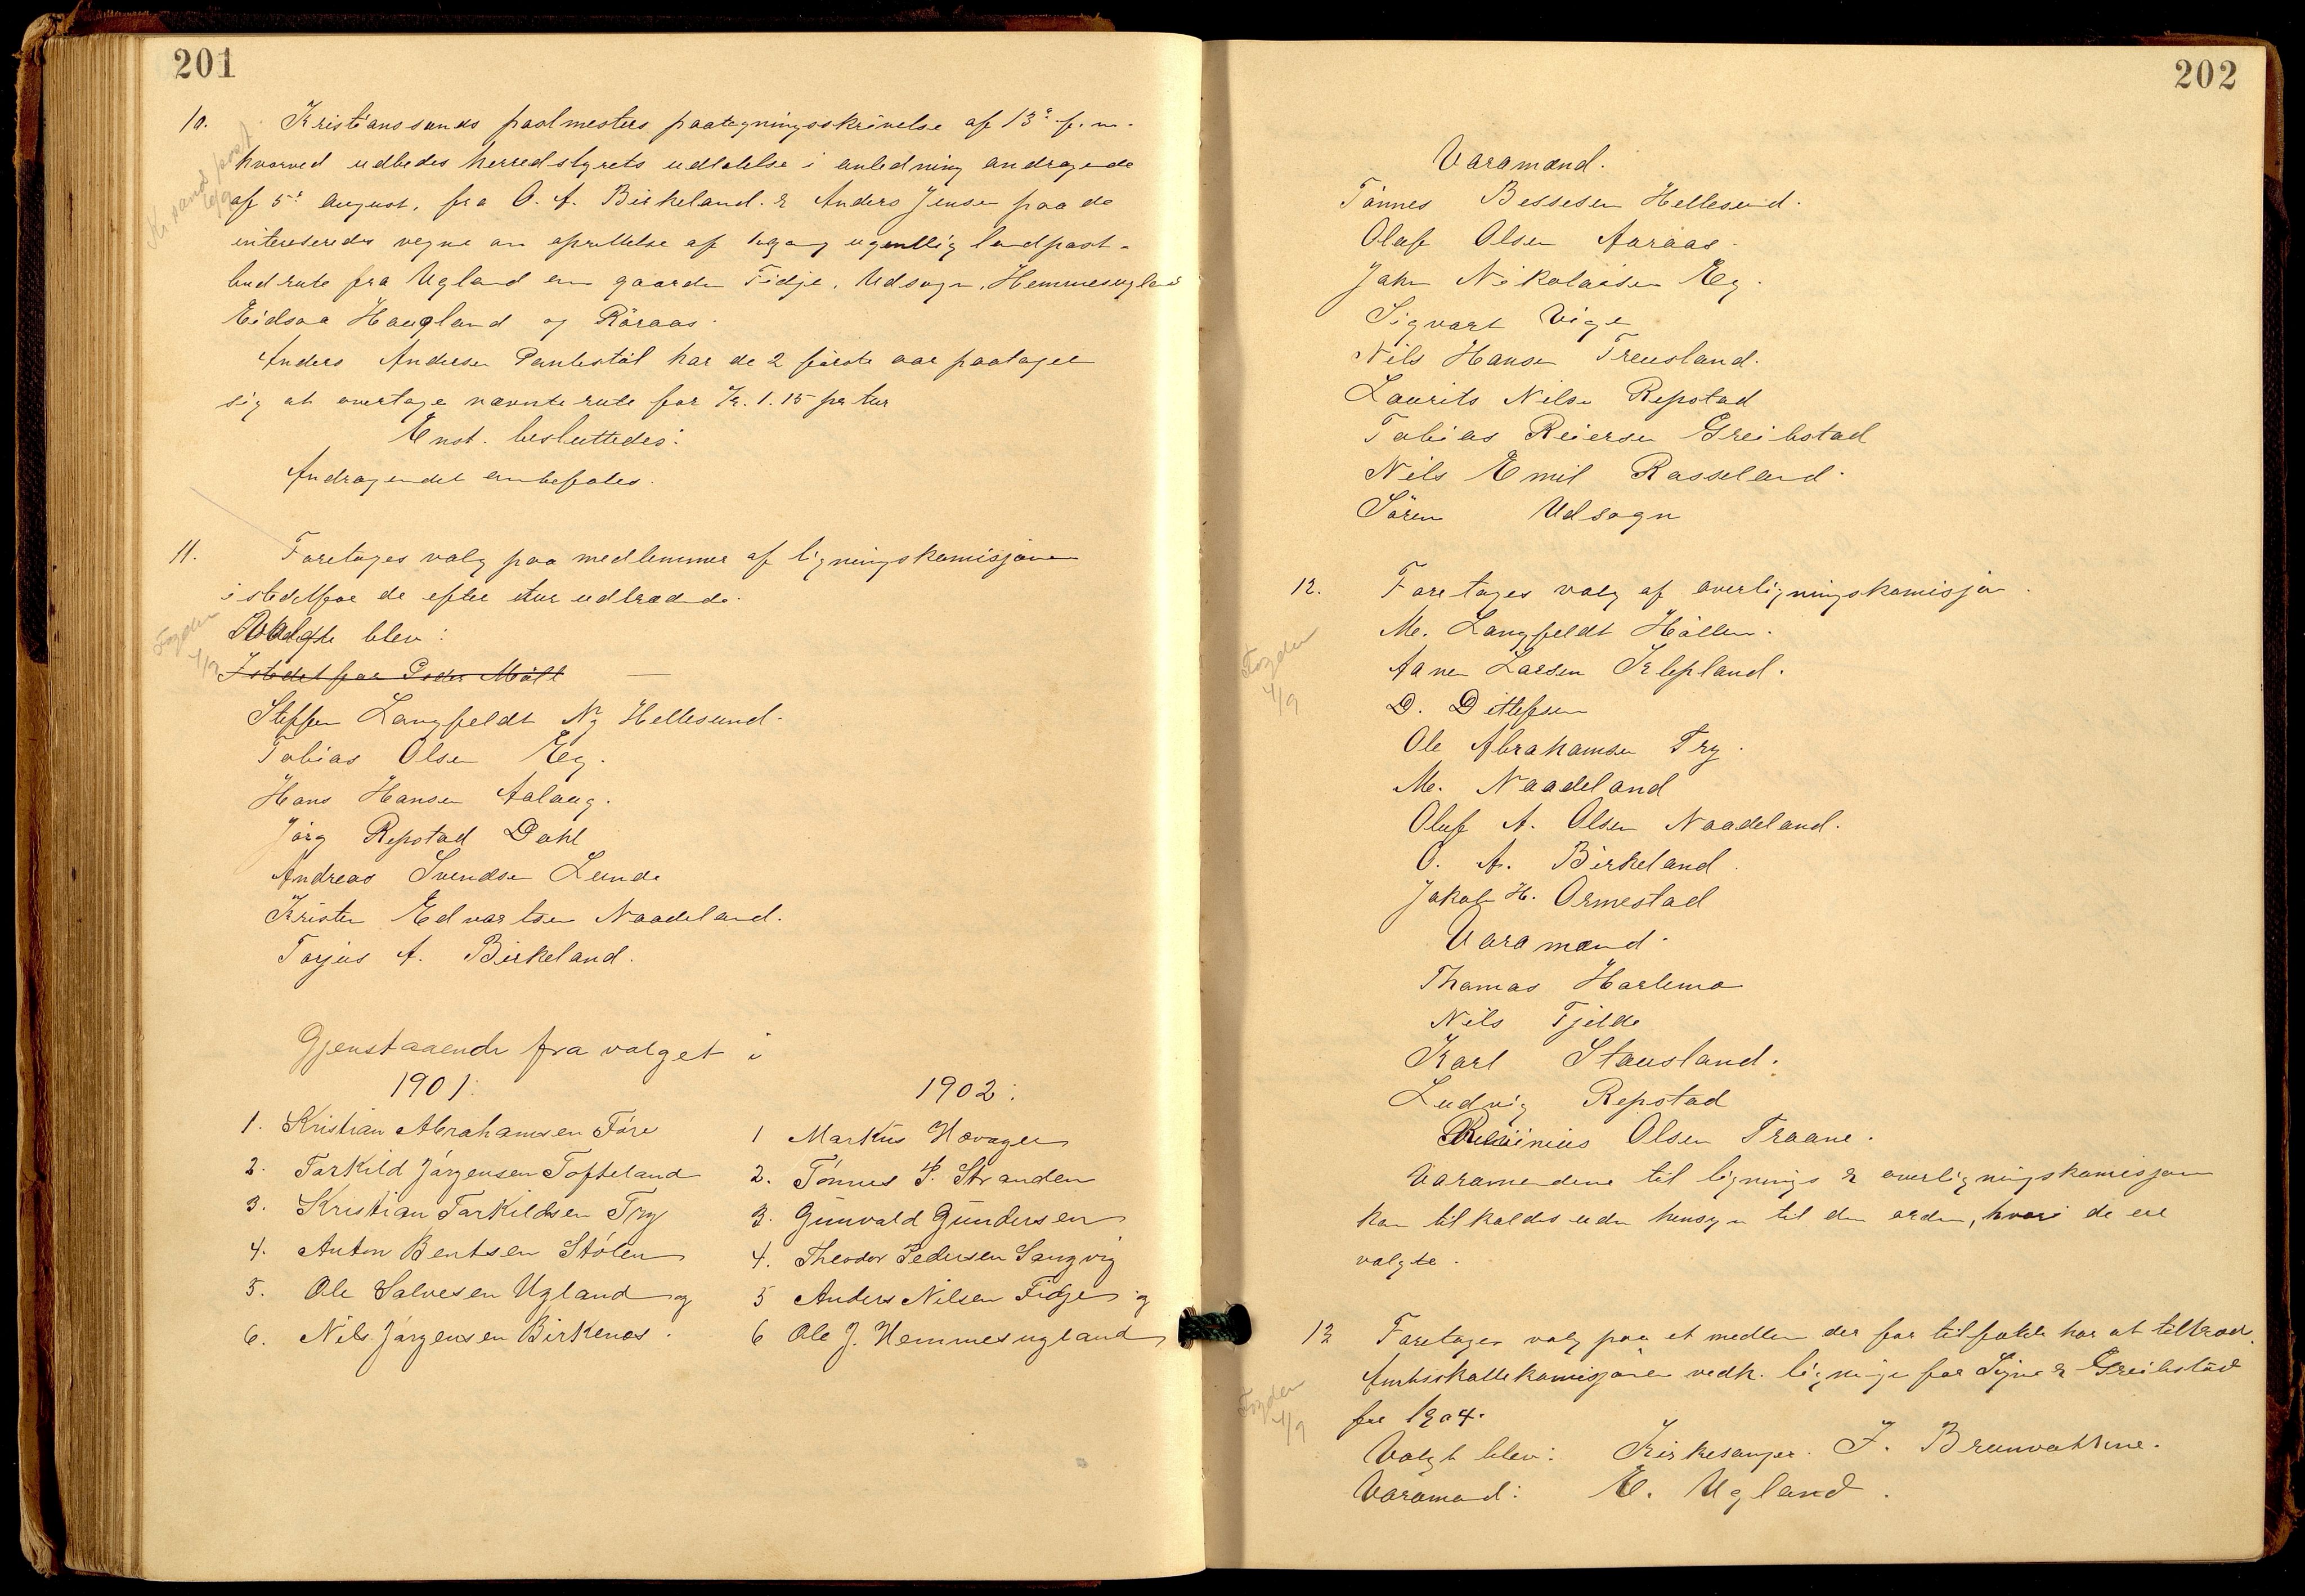 201
10. Kristianssands postmesters paategningsskrivelse af 13de f.m.
Kr.sand post
hvorved udbedes herredstyrets udtalelse i anledning andragende
af 5te august, fra O. A. Birkeland & Anders Jensen paa de
interesseredes vegne om oprettelse af 1 gang ugentlig landpost-
budrute fra Ugland om gaarden Fidje, Udsogn, Hemmesugland
Eidsaa Haugland og Röraas.
Anders Andersen har de 2 förste aar paataget
sig at overtage nævnte rute for Kr. 1.15 pr tur
Enst. besluttedes:
Andragendet anbefales.
11. Foretages valg paa medlemmer af ligningskomisjonen
istedetfor de efter tur udtrædende.
Fogden
4/9
Valgte blev:
Istedet for Peder Möll
Steffen Langfeldt Ny Hellesund.
Tobias Olsen Eg.
Hans Hansen Aalaug.
Jörg Repstad Dahl
Andreas Svendsen Lunde
Kristen Edvartsen Naadeland.
Torjus A. Birkeland.
Gjenstaaende fra valget i
1901: 1902:
1. Kristian Abrahamsen Føre 1 Markus Høvager
2. Tarkild Jørgensen Tofteland 2. Tønnes P. Stranden
3. Kristian Tarkildsen Try 3. Gunvald Gundersen
4. Anton Bentsen Stølen 4. Theodor Pedersen Langvig
5. Ole Salvesen Ugland og 5 Anders Nilsen Fidje og
6. Nils Jørgensen Birkenes. 6 Ole J. Hemmesugland
202
Varamænd.
Tönnes Bessesen Hellesund.
Oluf Olsen Aaraas.
John Nikolaisen Eg.
Sigvart Vige
Nils Hansen Treusland.
Laurits Nilsen Repstad
Tobias Reiersen Greibstad
Nils Emil Rasseland.
Sören Udsogn
12. Foretages valg af overligningskomisjon.
Fogden
4/9
M. Langfeldt Hållen.
Aanen Larsen Klepland.
D. Ditlefsen
Ole Abrahamsen Try.
M. Naadeland
Oluf A. Olsen Naadeland.
O. A. Birkeland.
Jakob H. Ormestad
Varamænd.
Thomas Harlemo
Nils Fjelde
Karl Stausland.
Ludvig Repstad
Olsen Traane.
Varamendene til lignings & overligningskomisjon
kan tilkaldes uden hensyn til den orden, hvori de ere
valgte.
13 Foretages valg paa et medlem der for tilfælde har at tiltræde
Amtsskattekomisjonen vedk. ligningen for Søgne & Greibstad
Fogden
4/9
for 1904.
Valgt blev: Kirkesanger J. Brunvatne.
Varamand: E. Ugland.